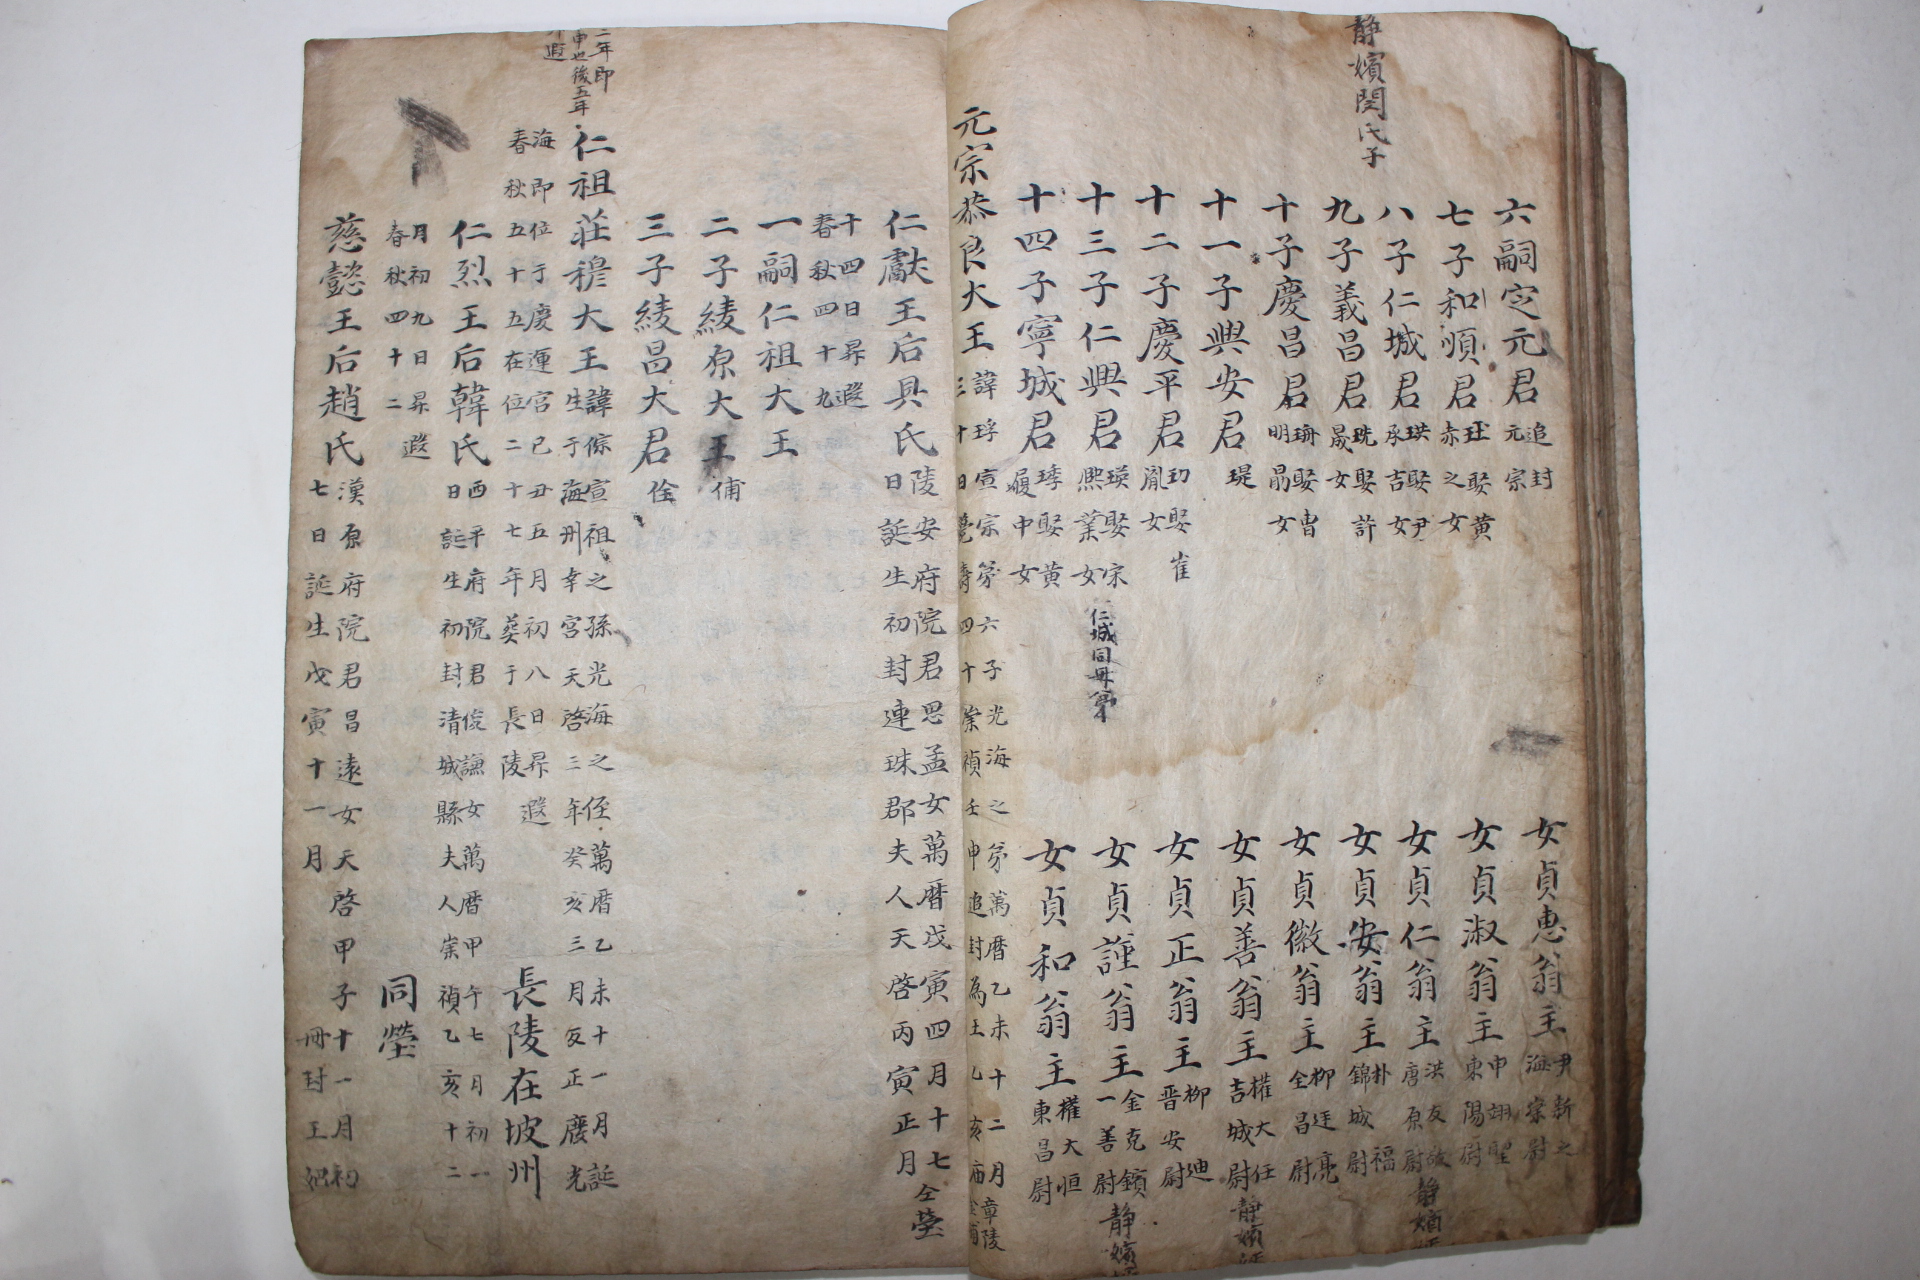 靜嬪閔氏子
六嗣定元君 追封元宗
七子和順君 玨娶黃赤之女
八子仁城君 珙娶尹承吉女
九子義昌君 珖娶許筬女
十子慶昌君 珘娶曺明勗女
十一子興安君 瑅
十二子慶平君 玏娶崔胤女
十三子仁興君 瑛娶宋熙業女
仁城同母弟
十四子寧城君 㻑娶黃履中女
女貞惠翁主 尹新之海嵩尉
女貞淑翁主 申翊聖東陽尉
女貞仁翁主 洪友敬唐原尉
靜嬪
女貞安翁主 朴瀰錦城尉
女貞徽翁主 柳廷亮全昌尉
女貞善翁主 權大任吉城尉
靜嬪
女貞正翁主 柳迪晋安尉
女貞謹翁主 金克鑌一善尉
靜嬪
女貞和翁主 權大恒東昌尉
元宗恭良大王 諱琈宣宗第六子光海之弟萬曆乙未十二月
三十日薨壽四十崇禎壬申追封爲王乙亥
章陵
仁獻王后具氏 陵安府院君思孟女萬曆戊寅四月十七
日誕生初封連珠郡夫人天啓丙寅正月
仝塋
十四日昇遐
春秋四十九
一嗣仁祖大王
二子綾原大王 俌
三子綾昌大君 佺
二年卽
申也後五年
昇遐
仁祖莊穆大王 諱倧宣祖之孫光海之侄萬曆乙未十一月誕
生于海州幸宮天啓三年癸亥三月反正廢光
海卽位于慶運宮己丑五月初八日昇遐
春秋五十五在位二十七年葬于長陵
長陵在坡州
仁烈王后韓氏 西平府院君俊謙女萬曆甲午七月初一
日誕生初封淸城縣夫人崇禎乙亥十二
月初九日昇遐
春秋四十二
同塋
慈懿王后趙氏 漢原府院君昌遠女天啓甲子十一月初
七日誕生戊寅十一月 冊封王妃